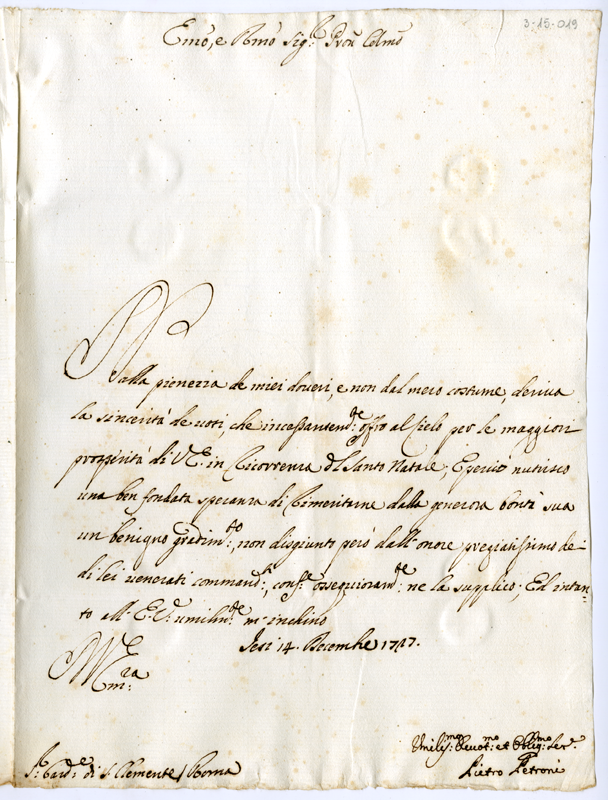 3-15-019
Emo, e Rmo Sigr. Pron Colmo
Dalla pienezza de miei doveri, e non dal mero costume, deriva
la sincerità de voti, che incessantemte: offro al Cielo per le maggiori
prosperità di VE in ricorrenza del Santo Natale; E perciò nutrisco
una ben fondata speranza di rimeritarne dalla generosa bontà sua
un benigno gradimto:, non disgiunto però dall'onore pregiatissimo dei
di lei venerati comandi:, conf. ossequiosamte: ne la supplico; Ed intan-
to all'E.V. umilmte: m'inchino
Iesi 14. Decembre
VE
Emza:
Sr. Cardle: di S. Clemente / Roma
Umilismo: Devotmo: et Obligmo: Ser.
Pietro Petroni